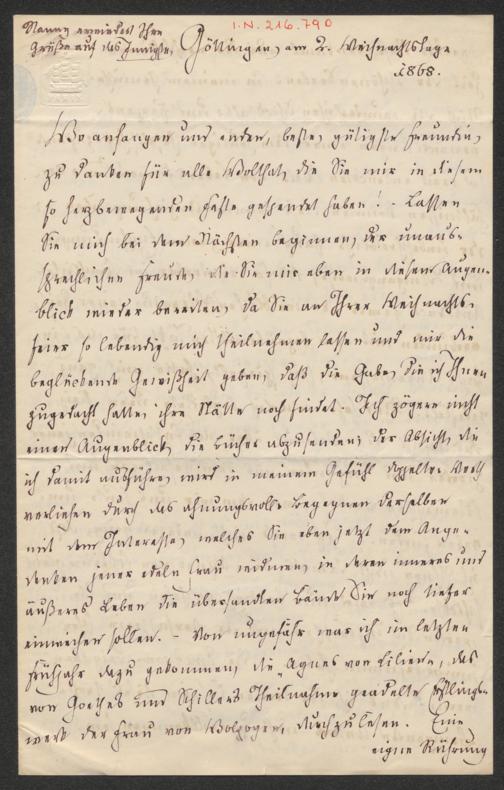 I.N. 216.790
Nanny erwiedert Ihre
Grüße auf das Innigste.
Göttingen, am 2. Weihnachtstage
1868.
Wo anfangen und enden, beste, gütigste Freundin,
zu danken für alle Wolthat, die Sie mir in diesem
so herzbewegenden Feste gespendet haben! – Lassen
Sie mich bei dem Nächsten beginnen, der unaus-
sprechlichen Freude, die Sie mir eben in diesem Augen-
blick wieder bereiten, da Sie an Ihrer Weihnachts-
feier so lebendig mich theilnehmen lassen und mir die
beglückende Gewißheit geben, daß die Gabe, die ich Ihnen
zugedacht hatte, ihre Stätte noch findet. Ich zögere nicht
einen Augenblick, die Bücher abzusenden; der Absicht, die
ich damit ausführe, wird in meinem Gefühl doppelter Werth
verliehen durch das ahnungsvolle Begegnen derselben
mit dem Interesse, welches Sie eben jetzt dem Ange-
denken jener edeln Frau widmen, in deren inneres und
äußeres Leben die übersandten Bände Sie noch tiefer
einweihen sollen. – Von ungefähr war ich im letzten
Frühjahr dazu gekommen, die "Agnes von Lilien", das
von Goethes und Schillers Theilnahme geadelte Erstlings-
werk der Frau von Wolzogen, durchzulesen. Eine
eigne Rührung